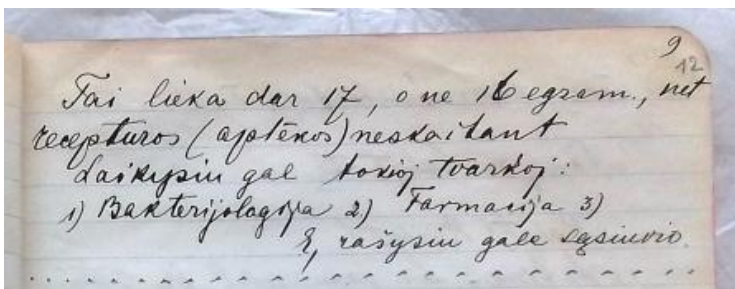 9
12
Tai lieka dar 17, o ne 16 egzam., net
receptūros (aptēkos) neskaitant
Laikysiu gal tokioj tvarkoj:
1) Bakterijologija 2) Farmacija 3)
E, rašysiu gale sąsiuvio.